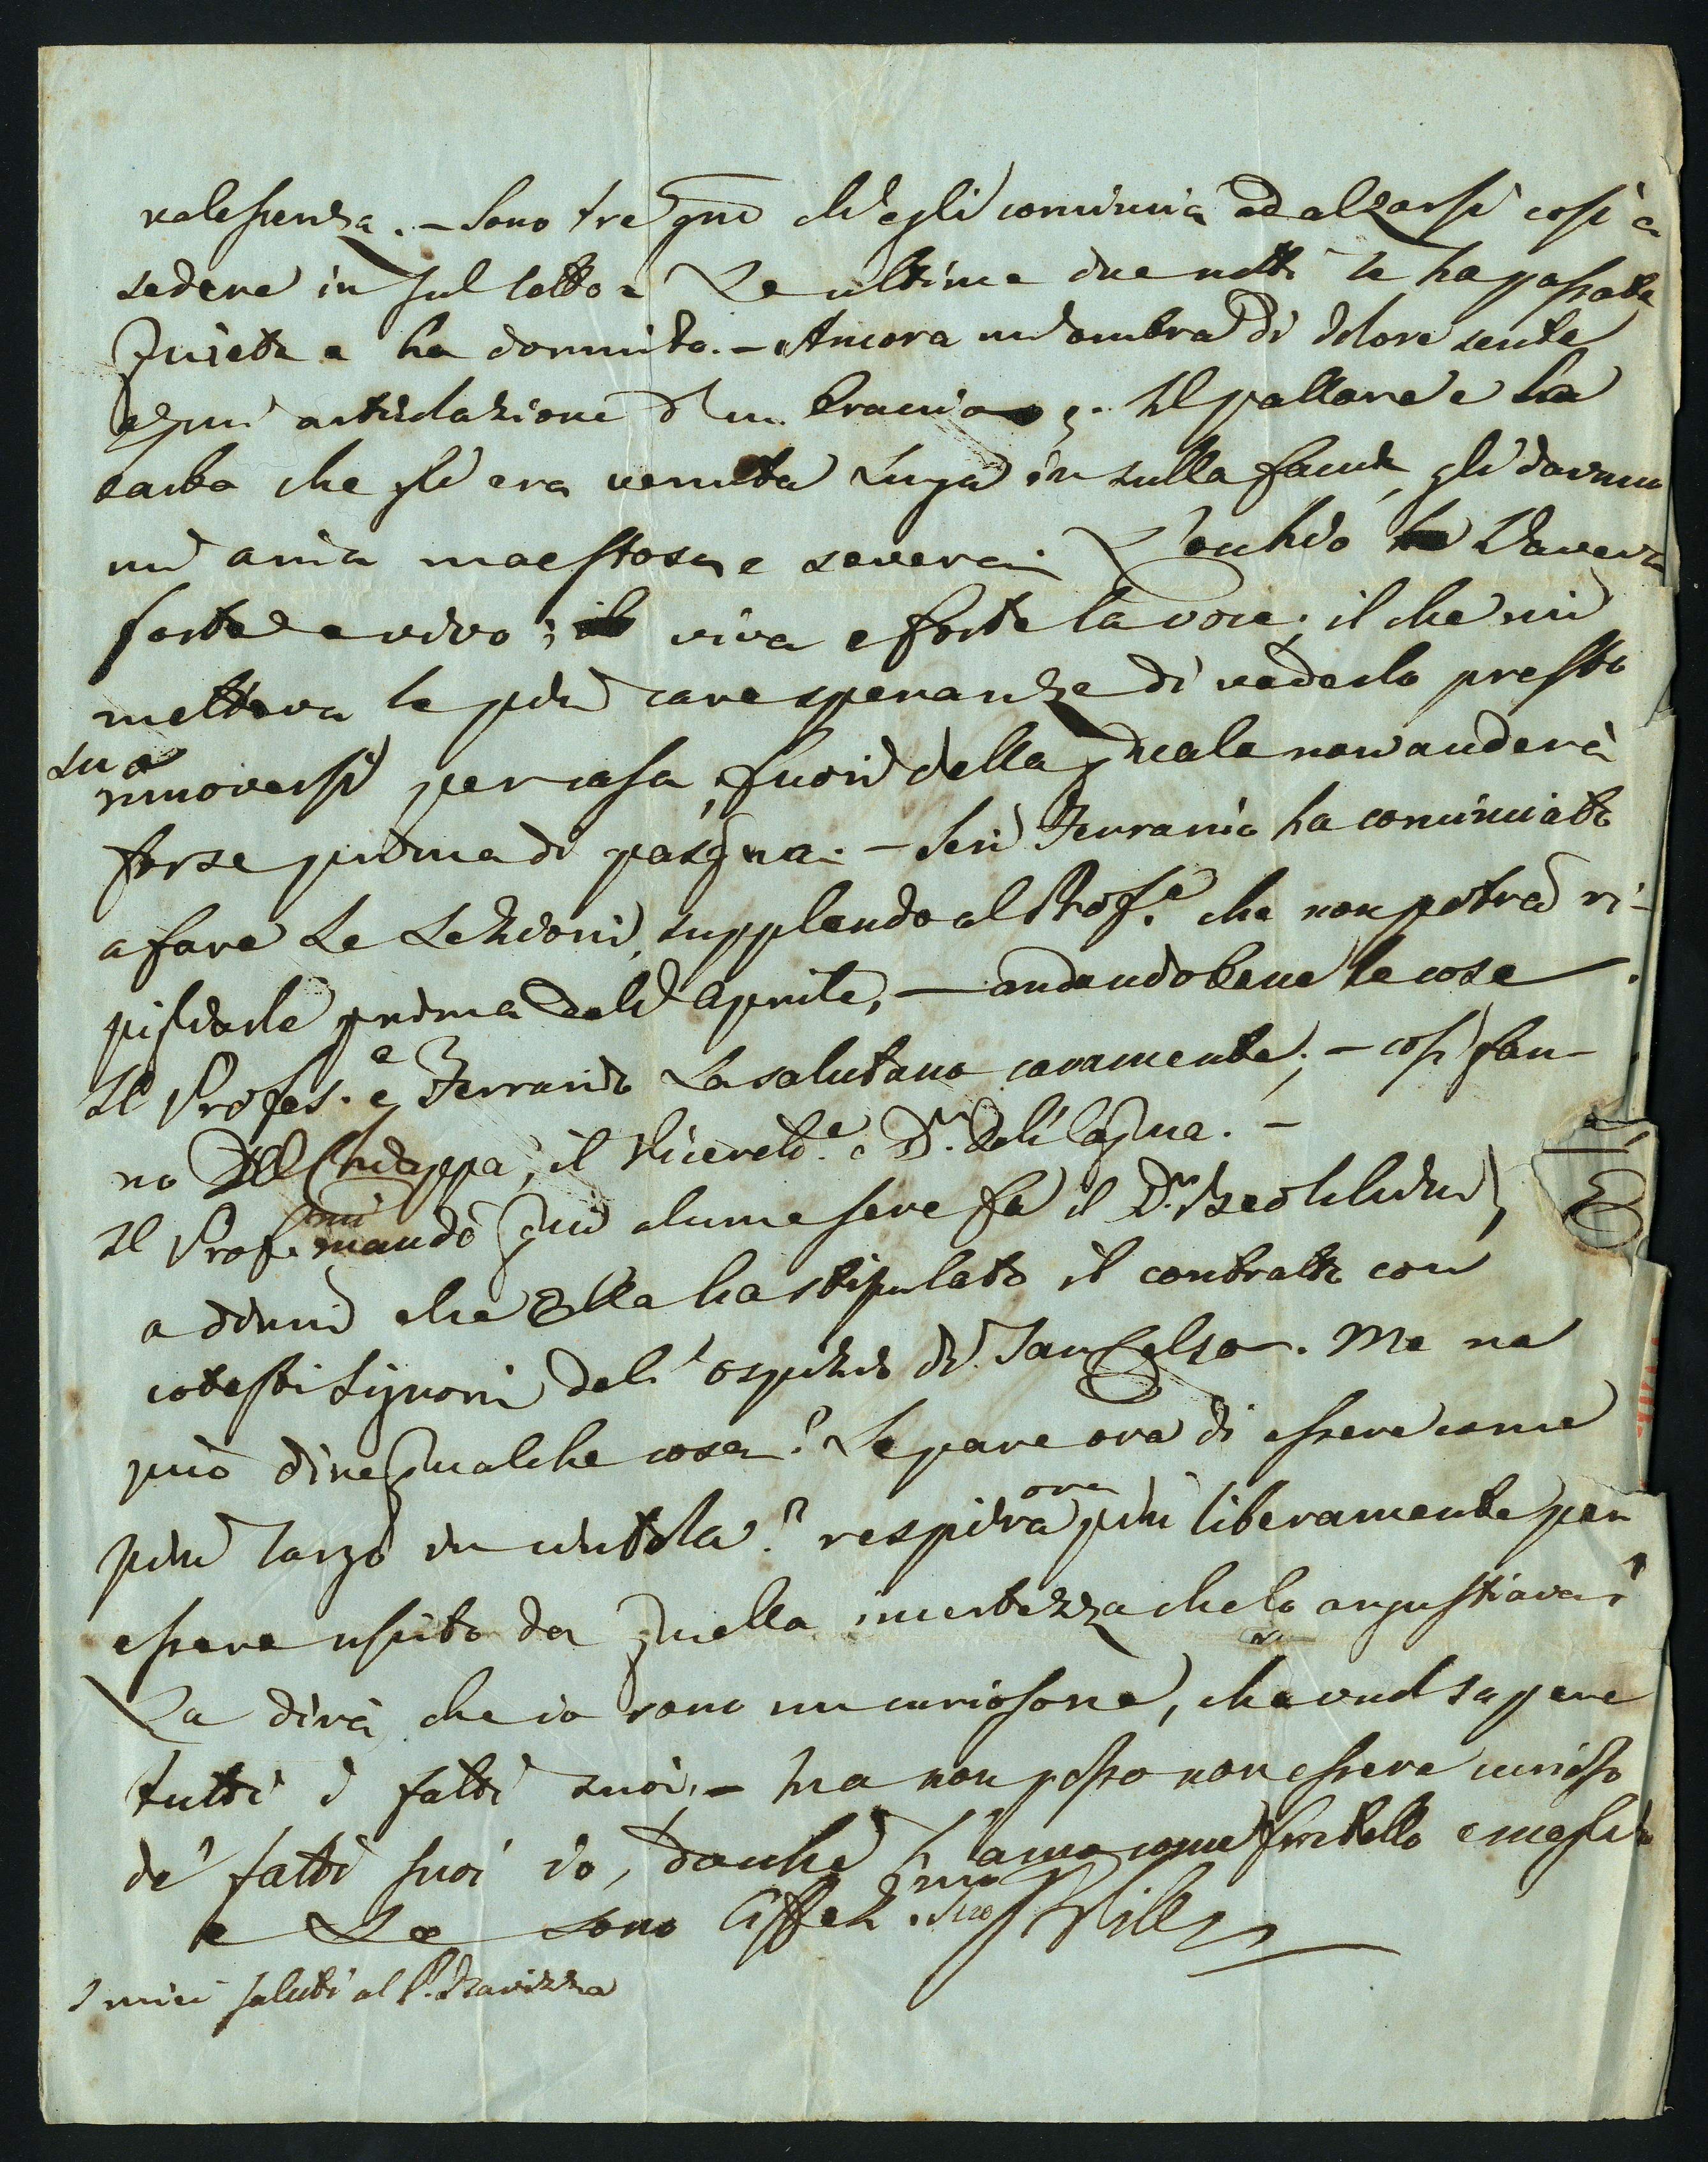 valescenza. - Sono tre gni ch'egli comincia ad alzarsi così a
sedere in sul letto. Le ultime due notti le ha passate
quiete e ha dormito. - Ancora un'ombra di dolore sente
articolazione d'un braccio. Il pallore e la
barba che gli era venuta lunga in sulla faccia, gli davano
un'aria maestosa e severa. L'occhio l'aveva
forte e vivo; viva e forte la voce; il che mi
metteva le più care speranze di vederlo presto
muoversi per casa sua, fuori della quale non anderà
forse prima di pasqua. - Ieri Ferrario ha cominciato
a fare le lezioni, supplendo al Prof.e che non potrà ri-
pigliarle prima dell'Aprile, - andando bene le cose.
Il Profes.e e Ferrario La salutano caramente; - così fan-
no Del Chiappa, il Vicerett.e e D.r Dell'Acqua. -
Il Prof. mi mandò qui alcune sere fa il D.r
a dirmi che Ella ha stipulato il contratto con
cotesti Signori dell'ospizio di San Celso. Me ne
può dire qualche cosa? Le pare ora di essere come
più largo in cintola? respira ora più liberamente per
essere uscito da quella incertezza che lo angustiava?
La dirà che io sono un curiosone, che vuol sapere
tutti i fatti suoi, - ma non posso non essere curioso
de' fatti suoi io, dacchè l'amo come fratello e meglio
e Le sono Affez.mo
I miei saluti al P. Ravizza